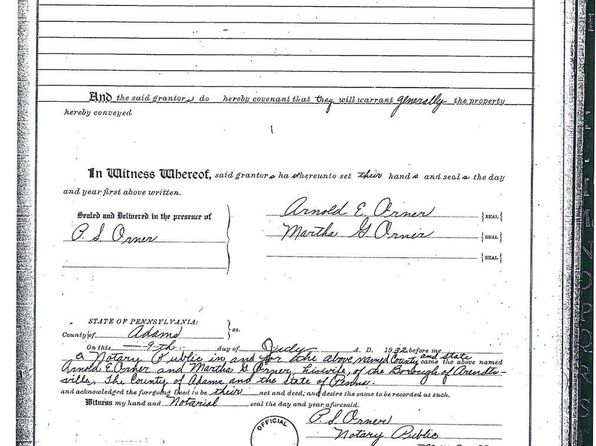 And the said grantors do hereby covenant that they will warrant generally the property
hereby conveyed
In Witness Whereof, said grantors ha hereunto set their hands and seals the day
and year first above written.
Sealed and Delivered in the presence of
P. S. Orner
Arnold E. Orner SEAL
Martha G Orner SEAL
SEAL
STATE OF PENNSYLVANIA:
County of Adams ss:
On this 9th day of July A. D. 1932 before me
a Notary Public in and for the above named County and State came the above named
Arnold E. Orner and Martha G. Orner, his wife, of the Borough of Arendts-
ville, The County of Adams and the State of Penna.
and acknowledged the foregoing Deed to be their act and deed, and desire the same to be recorded as such.
Witness my hand and Notarial seal the day and year aforesaid.
P. S. Orner
Notary Public
OFFICIAL